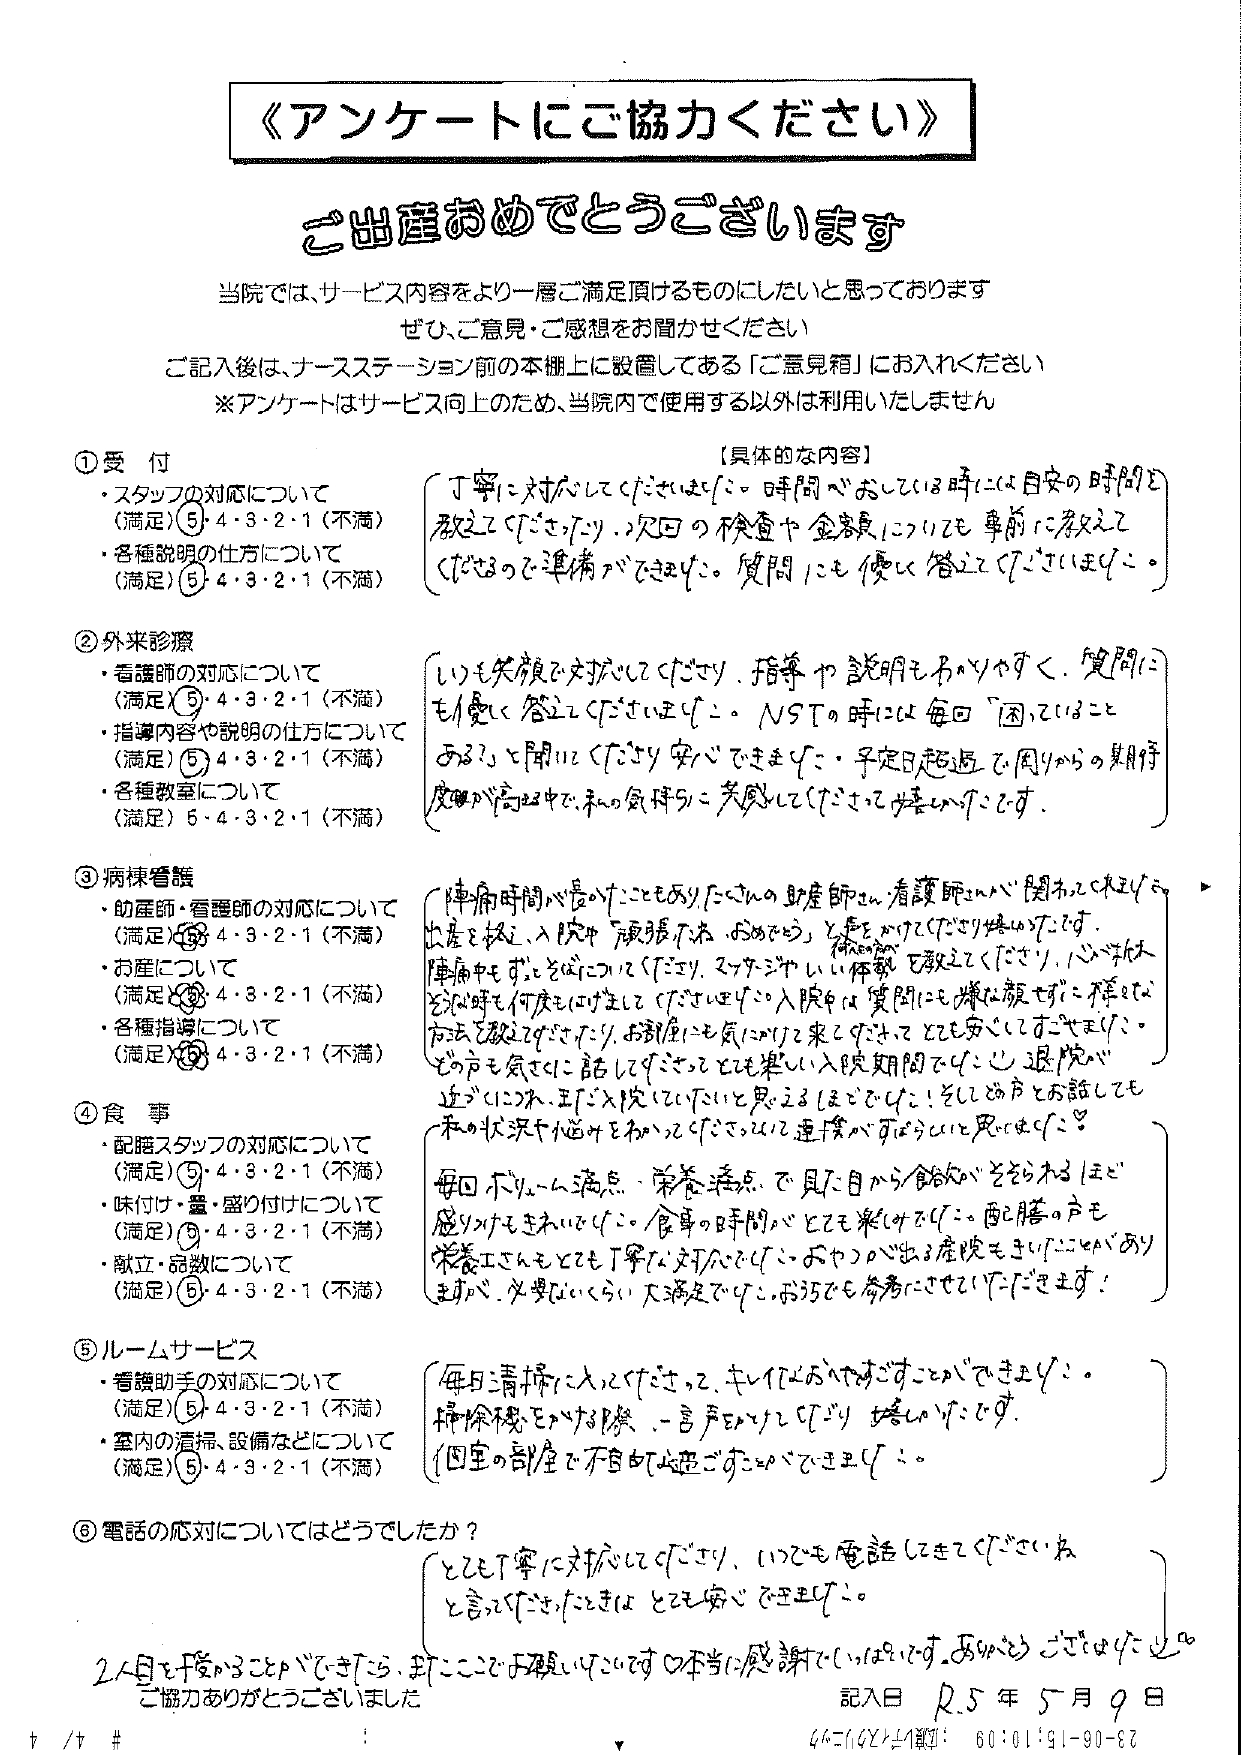 《アンケートにご協力ください》
ご出産おめでとうございます
当院では、サービス内容をより一層ご満足頂けるものにしたいと思っております
ぜひ、ご意見・ご感想をお聞かせください
ご記入後は、ナースステーション前の本棚上に設置してある「ご意見箱」にお入れください
※アンケートはサービス向上のため、当院内で使用する以外は利用いたしません
①受　付
【具体的な内容】
・スタッフの対応について
(満足) 5・4・3・2・1 (不満)
・各種説明の仕方について
(満足) 5・4・3・2・1 (不満)
丁寧に対応してくださいました。時間がおしている時には目安の時間を
教えてくださったり、次回の検査や金額についても事前に教えて
くださるので準備ができました。質問にも優しく答えてくださいました。
②外来診療
・看護師の対応について
(満足) 5・4・3・2・1 (不満)
・指導内容や説明の仕方について
(満足) 5・4・3・2・1 (不満)
・各種教室について
(満足) 5・4・3・2・1 (不満)
いつも笑顔で対応してくださり、指導や説明もわかりやすく、質問に
も優しく答えてくださいました。NSTの時には毎回「困っていること
ある?」と聞いてくださり安心できました。予定日超過で周りからの期待
度が高まる中で、私の気持ちに共感してくださって嬉しかったです。
③病棟看護
・助産師・看護師の対応について
(満足) 5・4・3・2・1 (不満)
・お産について
(満足) 5・4・3・2・1 (不満)
・各種指導について
(満足) 5・4・3・2・1 (不満)
陣痛時間が長かったこともあり、たくさんの助産師さん、看護師さんが関わってくれました。
出産を終え、入院中「頑張ったね、おめでとう」と声をかけてくださり嬉しかったです。
陣痛中もずっとそばについてくださり、マッサージやいい体勢を教えてくださり、心が折れ
そうな時も何度もはげましてくださいました。入院中は質問にも嫌な顔せずに様々な
方法を教えてくださったり、お部屋にも気にかけて来てくださってとても安心してすごせました。
どの方も気さくに話してくださってとても楽しい入院期間でした 退院が
近づくにつれ、まだ入院していたいと思えるほどでした!そしてどの方とお話しても
私の状況や悩みをわかってくださっていて連携がすばらしいと思いました♡
④食　事
・配膳スタッフの対応について
(満足) 5・4・3・2・1 (不満)
・味付け・量・盛り付けについて
(満足) 5・4・3・2・1 (不満)
・献立・品数について
(満足) 5・4・3・2・1 (不満)
毎回ボリューム満点、栄養満点で見た目から食欲がそそられるほど
盛りつけもきれいでした。食事の時間がとても楽しみでした。配膳の方も
栄養士さんもとても丁寧な対応でした。おやつが出る産院もきいたことがあり
ますが、必要ないくらい大満足でした。おうちでも参考にさせていただきます!
⑤ルームサービス
・看護助手の対応について
(満足) 5・4・3・2・1 (不満)
・室内の清掃、設備などについて
(満足) 5・4・3・2・1 (不満)
毎日清掃に入ってくださって、キレイなおへやですごすことができました。
掃除機をかける際、一言声をかけてくださり嬉しかったです。
個室の部屋で不自由なく過ごすことができました。
⑥電話の応対についてはどうでしたか?
とても丁寧に対応してくださり、いつでも電話してきてくださいね
と言ってくださったときはとても安心できました。
2人目を授かることができたら、またここでお願いしたいです♡本当に感謝でいっぱいです。ありがとうございました
ご協力ありがとうございました
記入日 R.5年5月9日
23-06-15;10:09 ;広瀬レディスクリニック
# 4/ 4